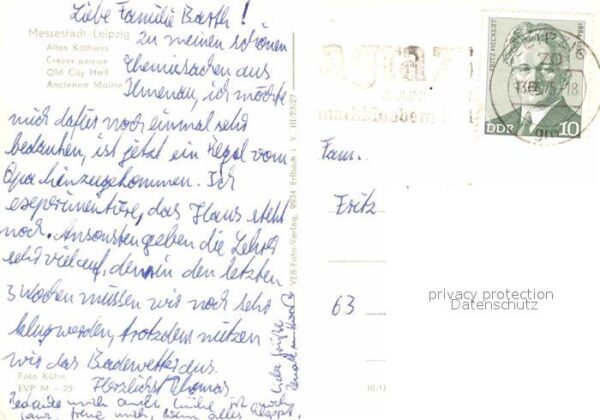 Liebe Familie Barth!
Messestadt Leipzig
Altes Rathaus
Old City Hall
Ancienne Mairie
Zu meinen schönen
Chemiesachen aus
Ilmenau, ich möchte
mich dafür noch einmal sehr
bedanken, ist jetzt ein Regal vom
Opa hinzugekommen. Ich
experimentiere, das Haus steht
noch. Ansonsten geben die Lehrer
sehr viel auf, denn in den letzten
3 Wochen müssen wir noch sehr
klug werden, trotzdem nutzen
wir das Badewetter aus.
Herzlichst Thomas
Foto Kühn
EVP M - 25
Bedanke mich auch
alles klappt.
Liebe Grüße
VEB-Foto-Verlag, 9934 Erlbach i. V.
agra
FRITZ HECKERT
DDR 10
Fam.
Fritz
63
privacy protection
Datenschutz